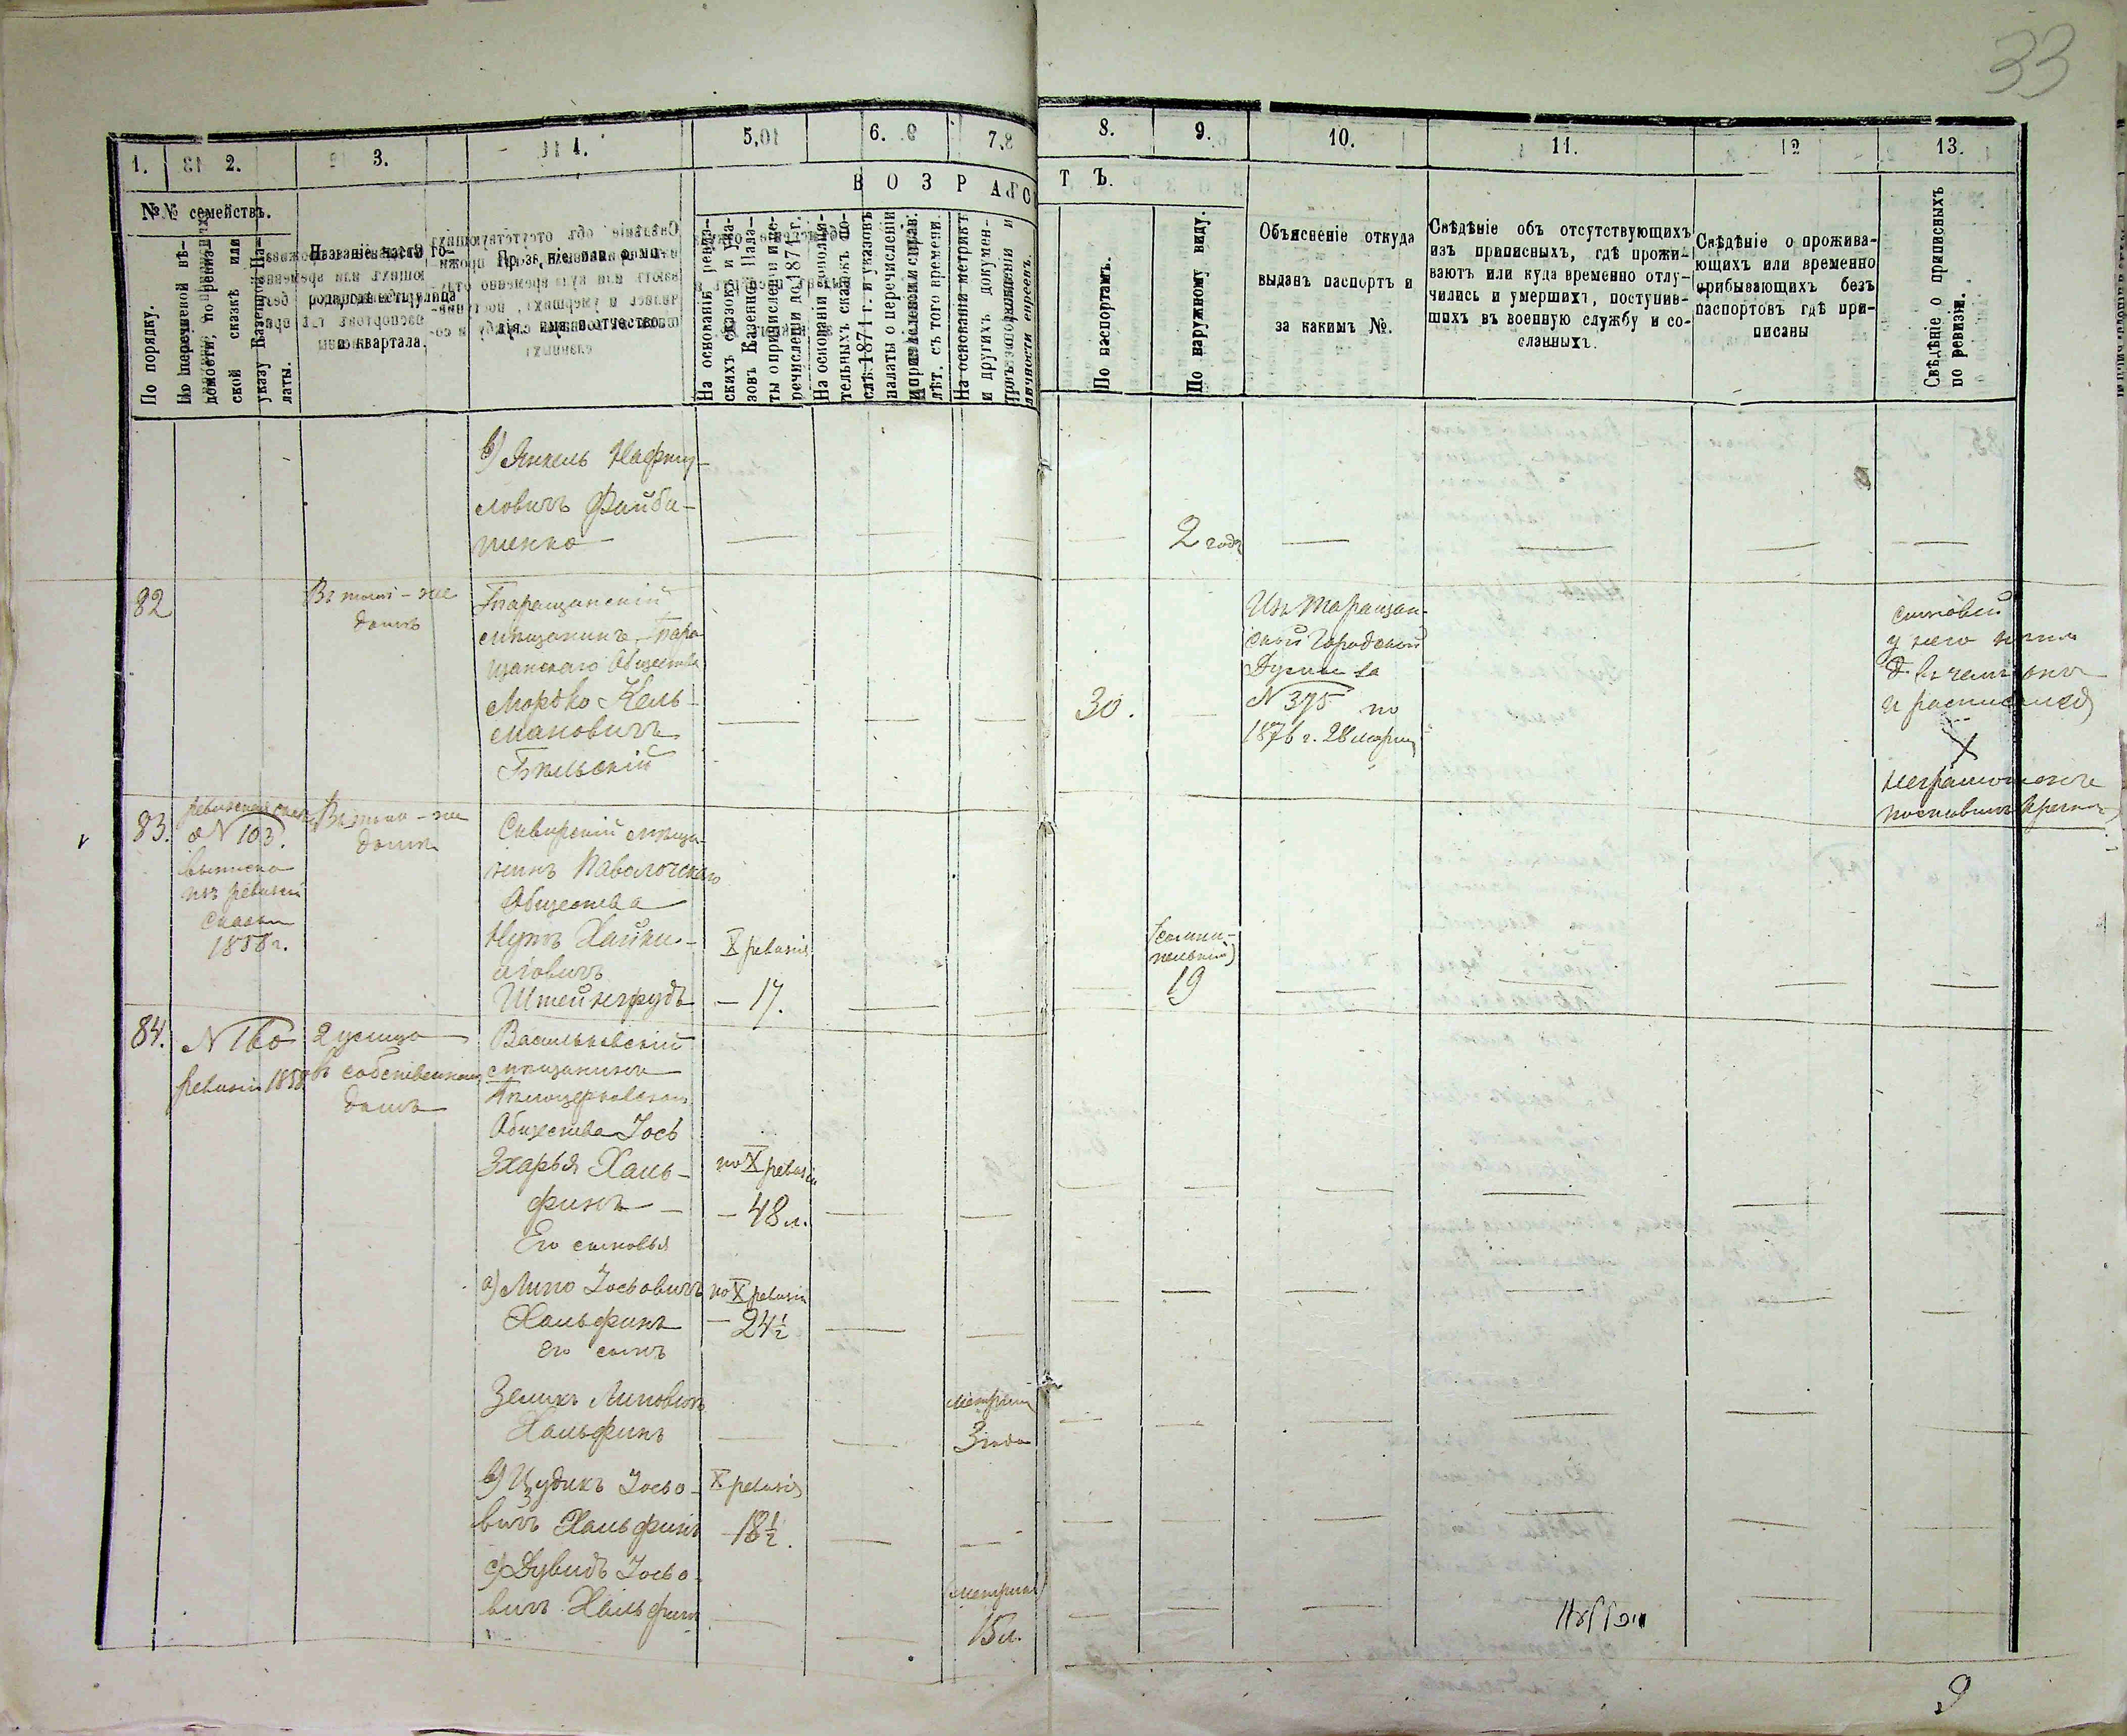 33
1. 2. 3. 4. 5. 6. 7. 8. 9. 10. 11. 12 13.
№№ семействъ.
В О З Р А С Т Ъ.
По порядку.
По перечневой вѣ-
домости, по ревиз-
ской сказкѣ или
указу Казенной Па-
латы.
Названіе части го-
рода,
и квартала.
Прозваніе или фами-
лія, имя и отчество.
На основаніи ревиз-
скихъ сказокъ и ука-
зовъ Казенной Пала-
ты о причисленіи и пе-
речисленіи до 1874 г.
На основаніи дополни-
тельныхъ сказокъ по-
слѣ 1874 г. и указовъ
палаты о перечисленіи
На основаніи метрикъ
и другихъ докумен-
По паспортамъ.
По наружному виду.
Объясненіе откуда
выданъ паспортъ и
за какимъ №.
Свѣдѣніе объ отсутствующихъ
изъ приписныхъ, гдѣ прожи-
ваютъ или куда временно отлу-
чились и умершихъ, поступив-
шихъ въ военную службу и со-
сланныхъ.
Свѣдѣніе о прожива-
ющихъ или временно
прибывающихъ безъ
паспортовъ гдѣ при-
писаны
Свѣдѣніе о приписныхъ
по ревизіи.
в) Янкель Нафту-
ловичъ Файби-
шенко
2 года
82
Въ томъ-же
домѣ
Таращанскій
мѣщанинъ Тара
щанскаго Общества
Мордко Кель-
мановичъ
Бѣльскій
30.
Изъ Таращан-
ской Городской
Думы за
N 375 по
1876 г. 28 марта
сыновей
у него нѣтъ
въ чемъ онъ
и росписался
X
неграмотенъ
поставилъ крестъ
83.
N 103.
выписка
изъ ревизіи
сказки
1858 г.
Въ томъ-же
домѣ
Сквирскій мѣща-
нинъ Паволочскаго
Общества
Нутъ Хаики-
Штейнгрудъ
X ревизія
17.
19
84.
N 160
ревизіи 1858
2 улица
въ собственномъ
домѣ
Васильковскій
мѣщанинъ
Бѣлоцерковскаго
Общества Іось
Зхарья Халь-
финъ
по X ревизіи
48 л.
Его сыновья
а) Липо Іосьовичъ
Хальфинъ
по X ревизіи
24½
его сынъ
Зелихъ Липовичъ
Хальфинъ
метрика
3 года
в) Цудикъ Іосьо-
вичъ Хальфинъ
X ревизія
18½.
с) Дувидъ Іосьо-
вичъ Хальфинъ
метрика
15 л.
9